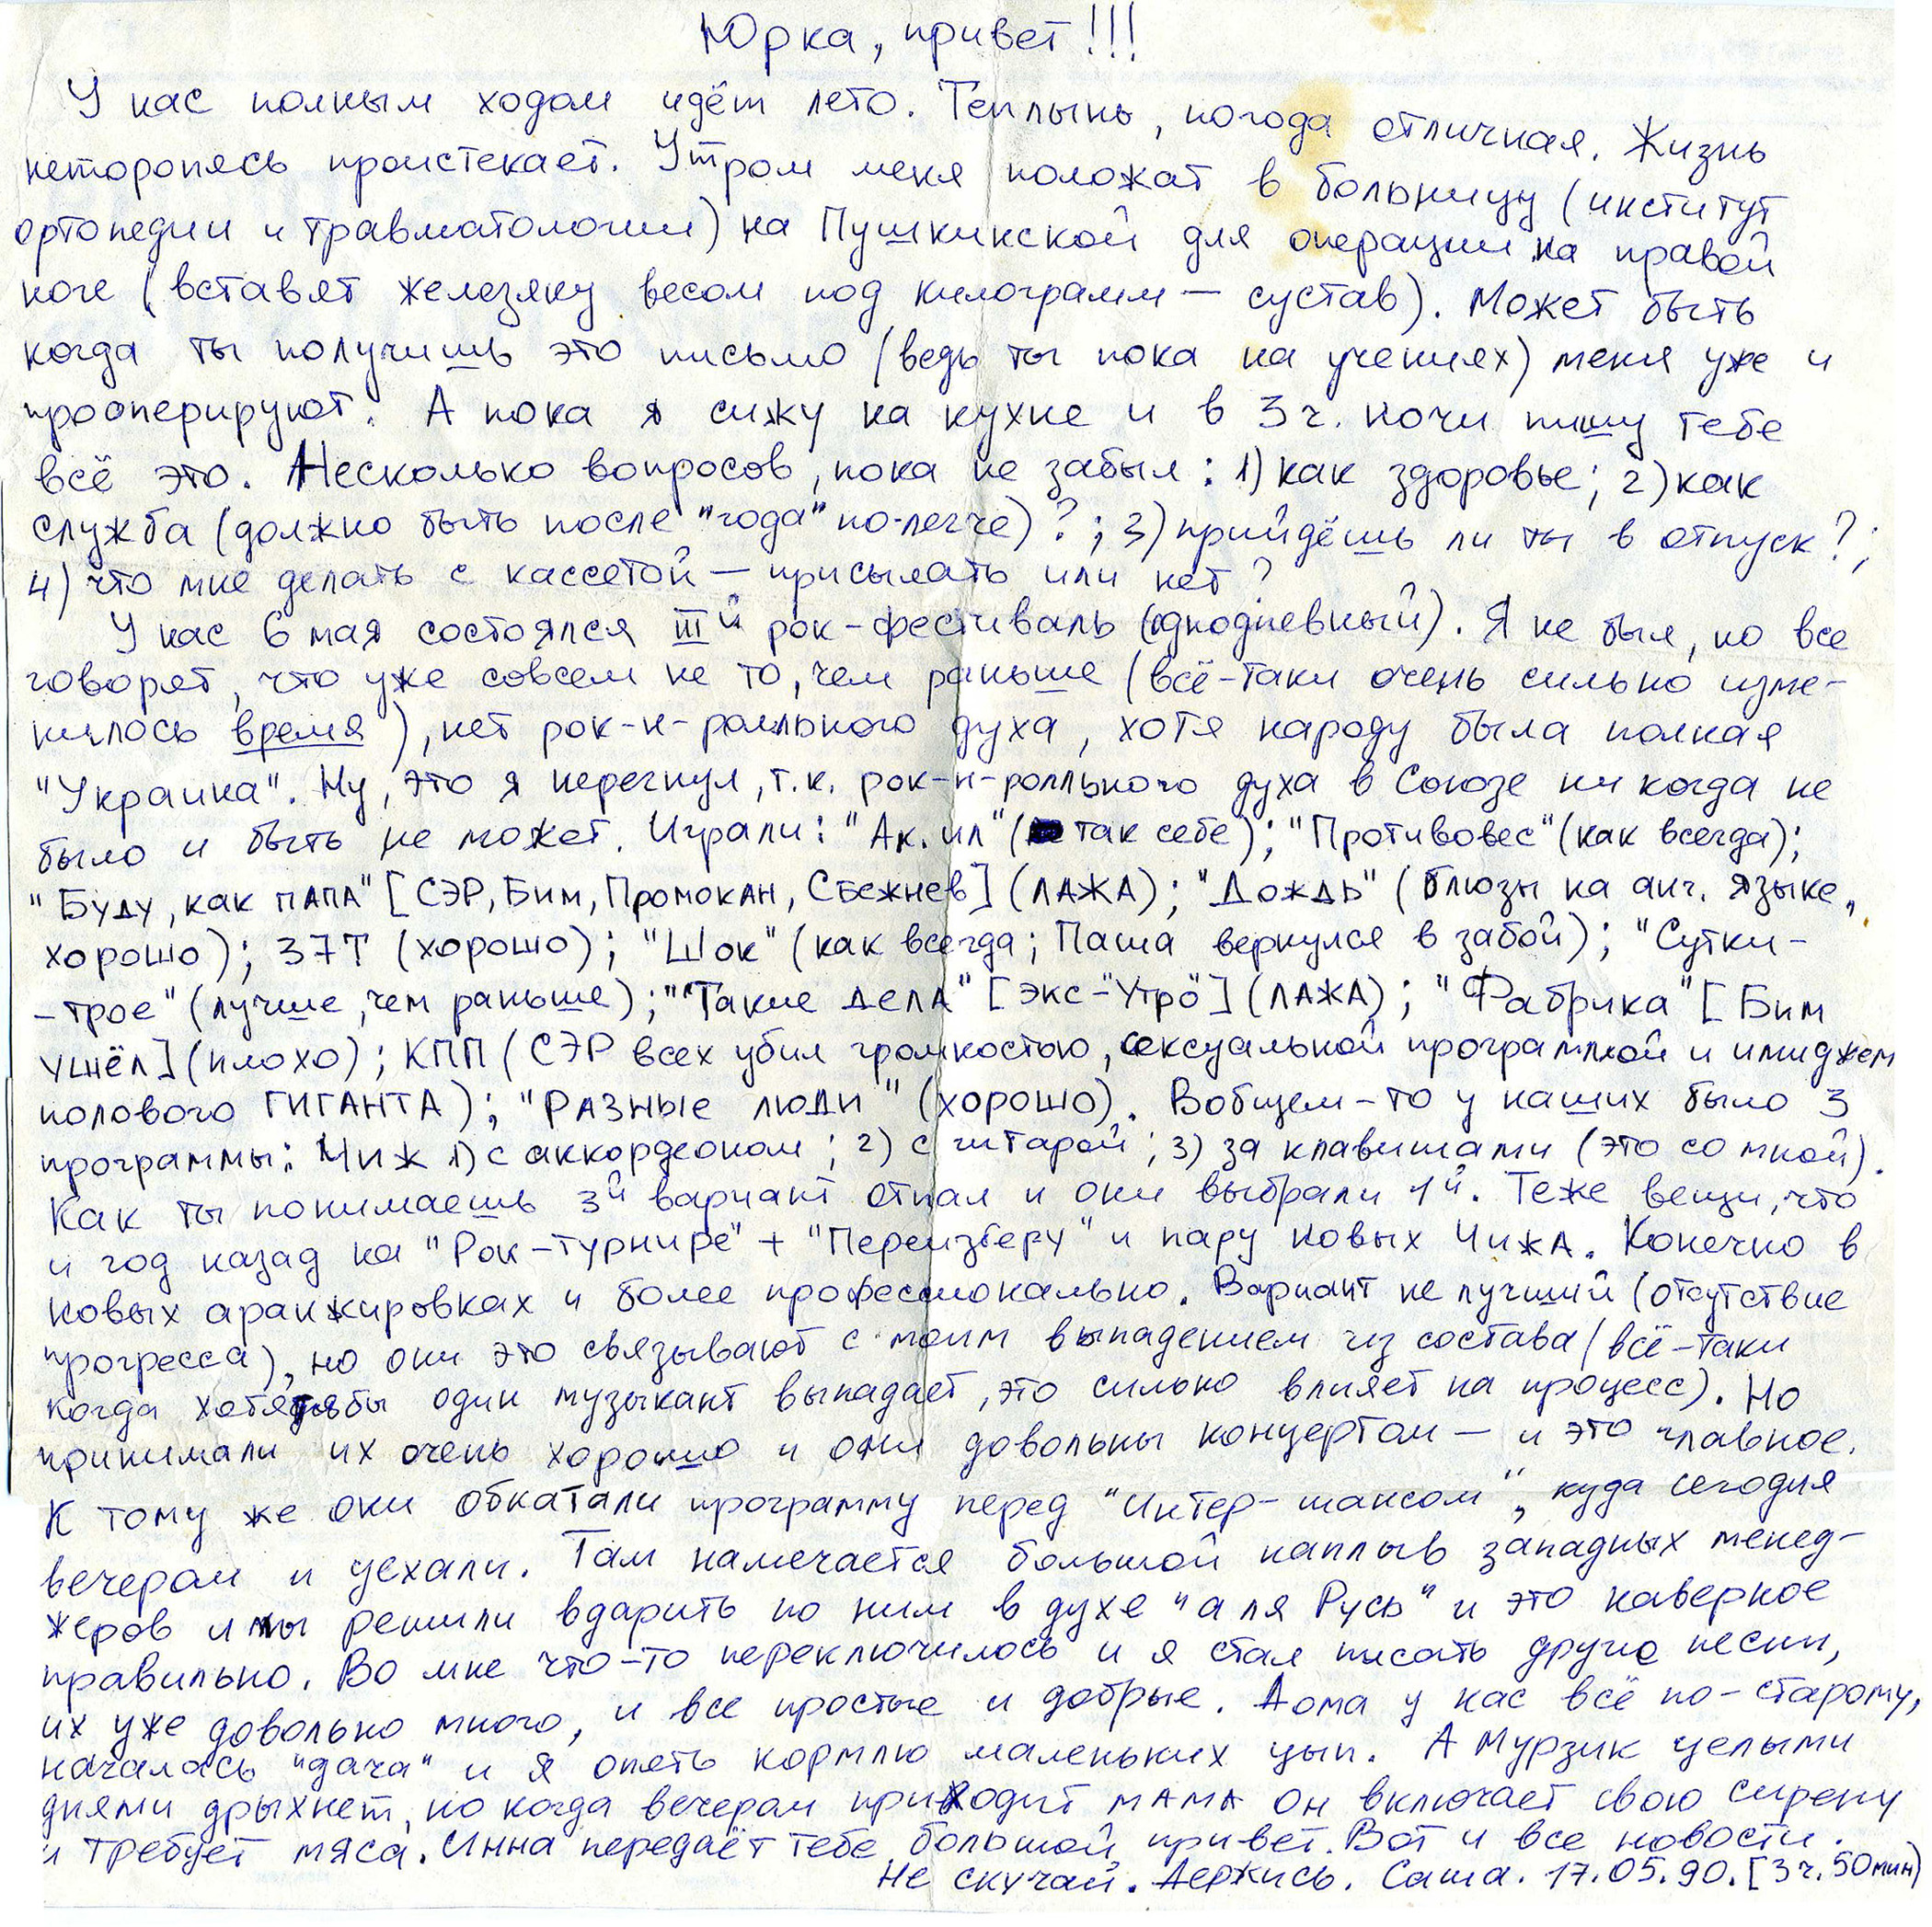 Юрка, привет!!!
У нас полным ходом идёт лето. Теплынь, погода отличная. Жизнь
неторопясь проистекает. Утром меня положат в больницу (институт
ортопедии и травматологии) на Пушкинской для операции на правой
ноге (вставят железяку весом под килограмм — сустав). Может быть
когда ты получишь это письмо (ведь ты пока на учениях) меня уже и
прооперируют. А пока я сижу на кухне и в 3 ч. ночи пишу тебе
всё это. Несколько вопросов, пока не забыл: 1) как здоровье; 2) как
служба (должно быть после "года" по-легче)?; 3) прийдёшь ли ты в отпуск?;
4) что мне делать с кассетой — присылать или нет?
У нас 6 мая состоялся IIIй рок-фестиваль (однодневный). Я не был, но все
говорят, что уже совсем не то, чем раньше (всё-таки очень сильно изме-
нилось время), нет рок-н-ролльного духа, хотя народу была полная
"Украина". Ну, это я перегнул, т.к. рок-н-ролльного духа в Союзе никогда не
было и быть не может. Играли: "Ак. ил" (так себе); "Противовес" (как всегда);
"Буду, как ПАПА" [СЭР, Бим, Промокан, Сбежнев] (ЛАЖА); "Дождь" (блюзы на анг. языке,
хорошо); 37Т (хорошо); "Шок" (как всегда; Паша вернулся в забой); "Сутки-
-трое" (лучше, чем раньше); "Такие дела" [экс-"Утро"] (ЛАЖА); "Фабрика" [Бим
ушёл] (плохо); КПП (СЭР всех убил громкостью, сексуальной программой и имиджем
полового ГИГАНТА); "Разные люди" (хорошо). Вобщем-то у наших было 3
программы: Чиж 1) с аккордеоном; 2) с гитарой; 3) за клавишами (это со мной).
Как ты понимаешь 3й вариант отпал и они выбрали 1й. Теже вещи, что
и год назад на "Рок-турнире" + "Переизберу" и пару новых Чижа. Конечно в
новых аранжировках и более профессионально. Вариант не лучший (отсутствие
прогресса), но они это связывают с моим выпадением из состава (всё-таки
когда хотя бы один музыкант выпадает, это сильно влияет на процесс). Но
принимали их очень хорошо и они довольны концертом — и это главное.
К тому же они обкатали программу перед "Интер-шансом", куда сегодня
вечером и уехали. Там намечается большой наплыв западных менед-
жеров и мы решили вдарить по ним в духе "а ля Русь" и это наверное
правильно. Во мне что-то переключилось и я стал писать другие песни,
их уже довольно много, и все простые и добрые. Дома у нас всё по-старому,
началась "дача" и я опять кормлю маленьких цып. А Мурзик целыми
днями дрыхнет, но когда вечером приходит МАМА он включает свою сирену
и требует мяса. Инна передаёт тебе большой привет. Вот и все новости.
Не скучай. Держись. Саша. 17.05.90. [3 ч. 50 мин)